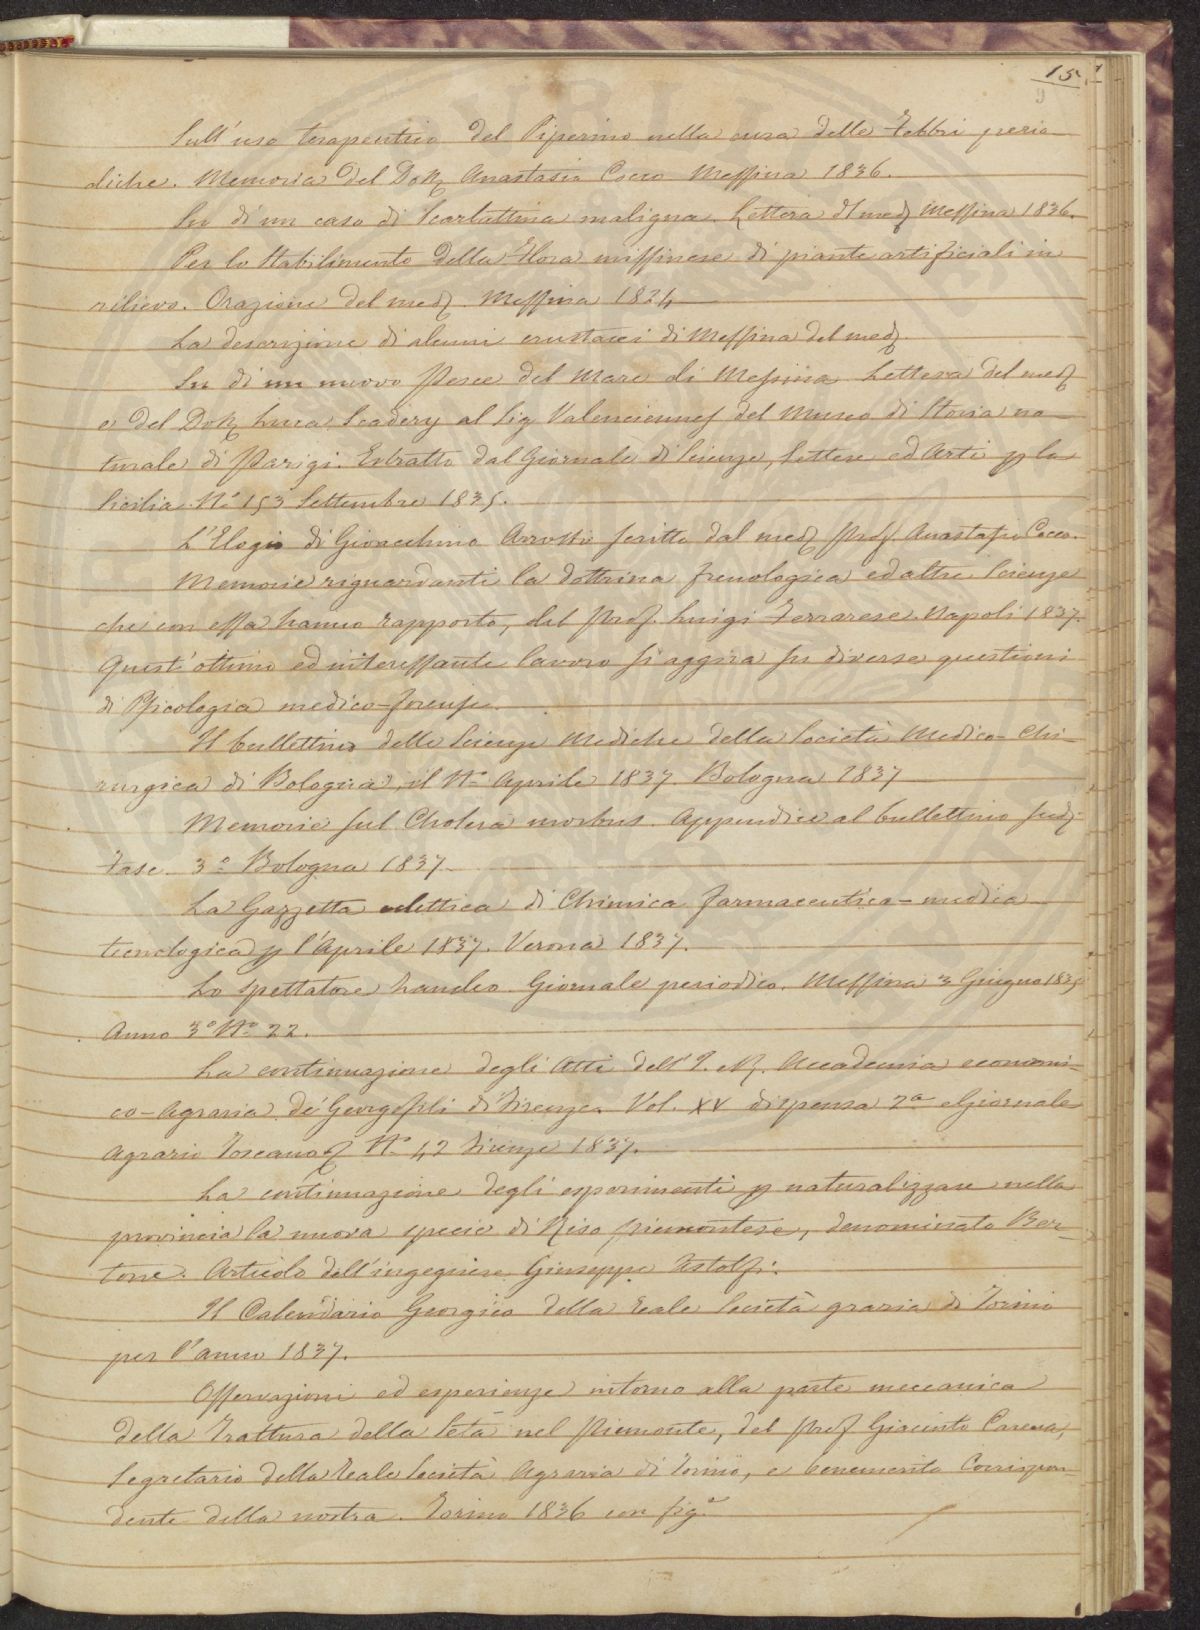 15
9
Sull'uso terapeutico del Piperino nella cura delle Febbri perio-
diche. Memoria del Dott. Anastasio Cocco Messina 1836.
Su di un caso di Scarlattina maligna. Lettera del med.° Messina 1836.
Per lo stabilimento della Flora missinese di piante artificiali in
rilievo. Orazione del med.° Messina 1824
La descrizione di alcuni crustacei di Messina del med.°
Su di un nuovo Pesce del Mare di Messina Lettera del med.°
e del Dott. Luca Scadery al Sig. Valenciennes del Museo di Storia na-
turale di Parigi. Estratto dal Giornale di Scienze, Lettere ed Arti p la
Sicilia. N.° 153 Settembre 1835.
L'Elogio di Gioacchino Arrosto scritto dal med.° Prof. Anastasio Cocco.
Memorie riguardanti la dottrina frenologica ed altre Scienze
che con essa hanno rapporto, del Prof. Luigi Ferrarese. Napoli 1837.
Quest'ottimo ed interessante lavoro si aggira su diverse questioni
di Psicologia medico-forense.
Il bullettino delle Scienze Mediche della Società Medico-Chi-
rurgica di Bologna, il N.° Aprile 1837. Bologna 1837
Memorie sul Cholera morbus. Appendice al bullettino sud.°
Fasc. 3.° Bologna 1837.
La Gazzetta eclettica di Chimica farmaceutica-medica
tecnologica p l'Aprile 1837. Verona 1837.
Lo Spettatore Zancleo. Giornale periodico. Messina 3 Giugno 1835
Anno 3° N.° 22.
La continuazione degli Atti dell'I. e R. Accademia economi-
co-Agraria de' Georgofili di Firenze. Vol. XV dispensa 2.a e Giornale
Agrario Toscano N.° 42 Firenze 1837.
La continuazione degli esperimenti p naturalizzare nella
provincia la nuova specie di Riso piemontese, denominato Ber-
tone. Articolo dell'ingegnere Giuseppe Astolfi.
Il Calendario Georgico della Reale Società graria di Torino
per l'anno 1837.
Osservazioni ed esperienze intorno alla parte meccanica
della Trattura della Seta nel Piemonte, del Prof. Giacinto Carena,
Segretario della Reale Società Agraria di Torino, e benemerito Corrispon-
dente della nostra. Torino 1836 con fig.e